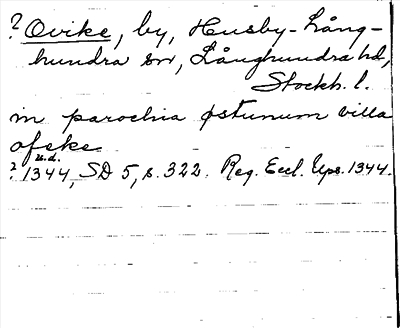 ? Ovike, by, Husby-Lång-
hundra sn, Långhundra hd,
Stockh. l.
in parochia østunum villa
ofske
u.d.
? 1344, SD 5, s. 322. Reg. Eccl. Ups. 1344.